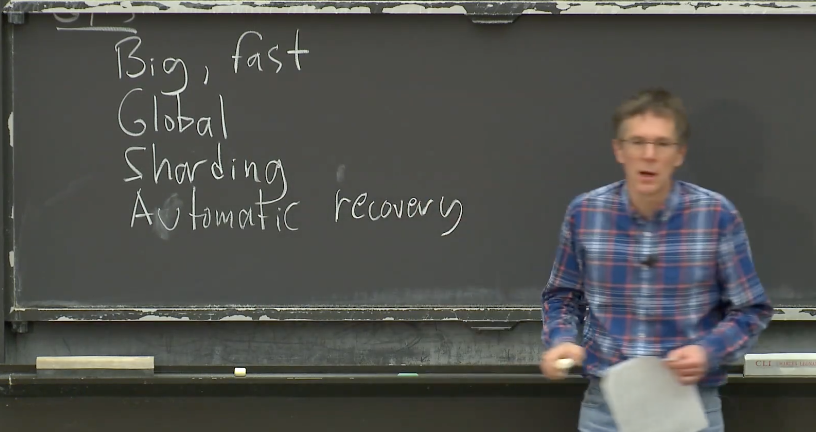 Big, fast
Global
Sharding
Automatic recovery